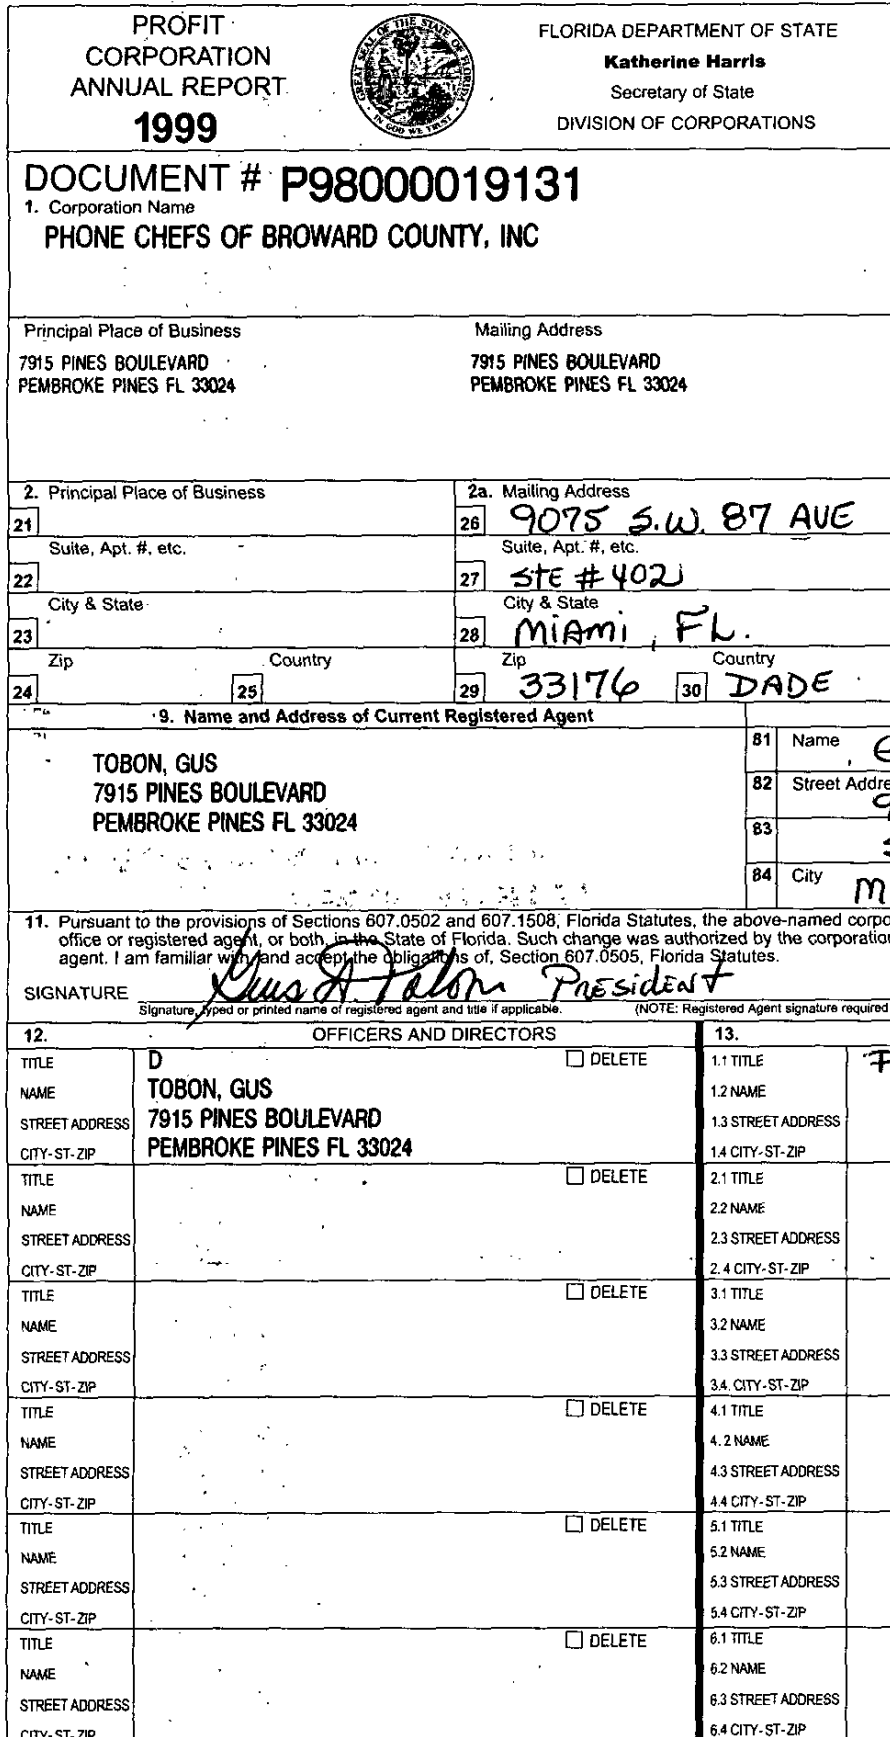 PROFIT
CORPORATION
ANNUAL REPORT
1999
GREAT SEAL OF THE STATE OF FLORIDA
IN GOD WE TRUST
FLORIDA DEPARTMENT OF STATE
Katherine Harris
Secretary of State
DIVISION OF CORPORATIONS
DOCUMENT # P98000019131
1. Corporation Name
PHONE CHEFS OF BROWARD COUNTY, INC
Principal Place of Business
Mailing Address
7915 PINES BOULEVARD
PEMBROKE PINES FL 33024
7915 PINES BOULEVARD
PEMBROKE PINES FL 33024
2. Principal Place of Business
2a. Mailing Address
21
26 9075 S.W. 87 AVE
Suite, Apt. #, etc.
Suite, Apt. #, etc.
22
27 STE # 402
City & State
City & State
23
28 MIAMI, FL.
Zip Country
Zip Country
24 25
29 33176 30 DADE
9. Name and Address of Current Registered Agent
TOBON, GUS
7915 PINES BOULEVARD
PEMBROKE PINES FL 33024
81 Name
82 Street Addre
83
84 City M
11. Pursuant to the provisions of Sections 607.0502 and 607.1508, Florida Statutes, the above-named corpo
office or registered agent, or both, in the State of Florida. Such change was authorized by the corporation
agent. I am familiar with, and accept the obligations of, Section 607.0505, Florida Statutes.
SIGNATURE Gus A. Tobon PRESIDENT
Signature, typed or printed name of registered agent and title if applicable. (NOTE: Registered Agent signature required
12. OFFICERS AND DIRECTORS
13.
TITLE D DELETE
NAME TOBON, GUS
STREET ADDRESS 7915 PINES BOULEVARD
CITY-ST-ZIP PEMBROKE PINES FL 33024
1.1 TITLE
1.2 NAME
1.3 STREET ADDRESS
1.4 CITY-ST-ZIP
TITLE DELETE
NAME
STREET ADDRESS
CITY-ST-ZIP
2.1 TITLE
2.2 NAME
2.3 STREET ADDRESS
2.4 CITY-ST-ZIP
TITLE DELETE
NAME
STREET ADDRESS
CITY-ST-ZIP
3.1 TITLE
3.2 NAME
3.3 STREET ADDRESS
3.4. CITY-ST-ZIP
TITLE DELETE
NAME
STREET ADDRESS
CITY-ST-ZIP
4.1 TITLE
4.2 NAME
4.3 STREET ADDRESS
4.4 CITY-ST-ZIP
TITLE DELETE
NAME
STREET ADDRESS
CITY-ST-ZIP
5.1 TITLE
5.2 NAME
5.3 STREET ADDRESS
5.4 CITY-ST-ZIP
TITLE DELETE
NAME
STREET ADDRESS
CITY-ST-ZIP
6.1 TITLE
6.2 NAME
6.3 STREET ADDRESS
6.4 CITY-ST-ZIP